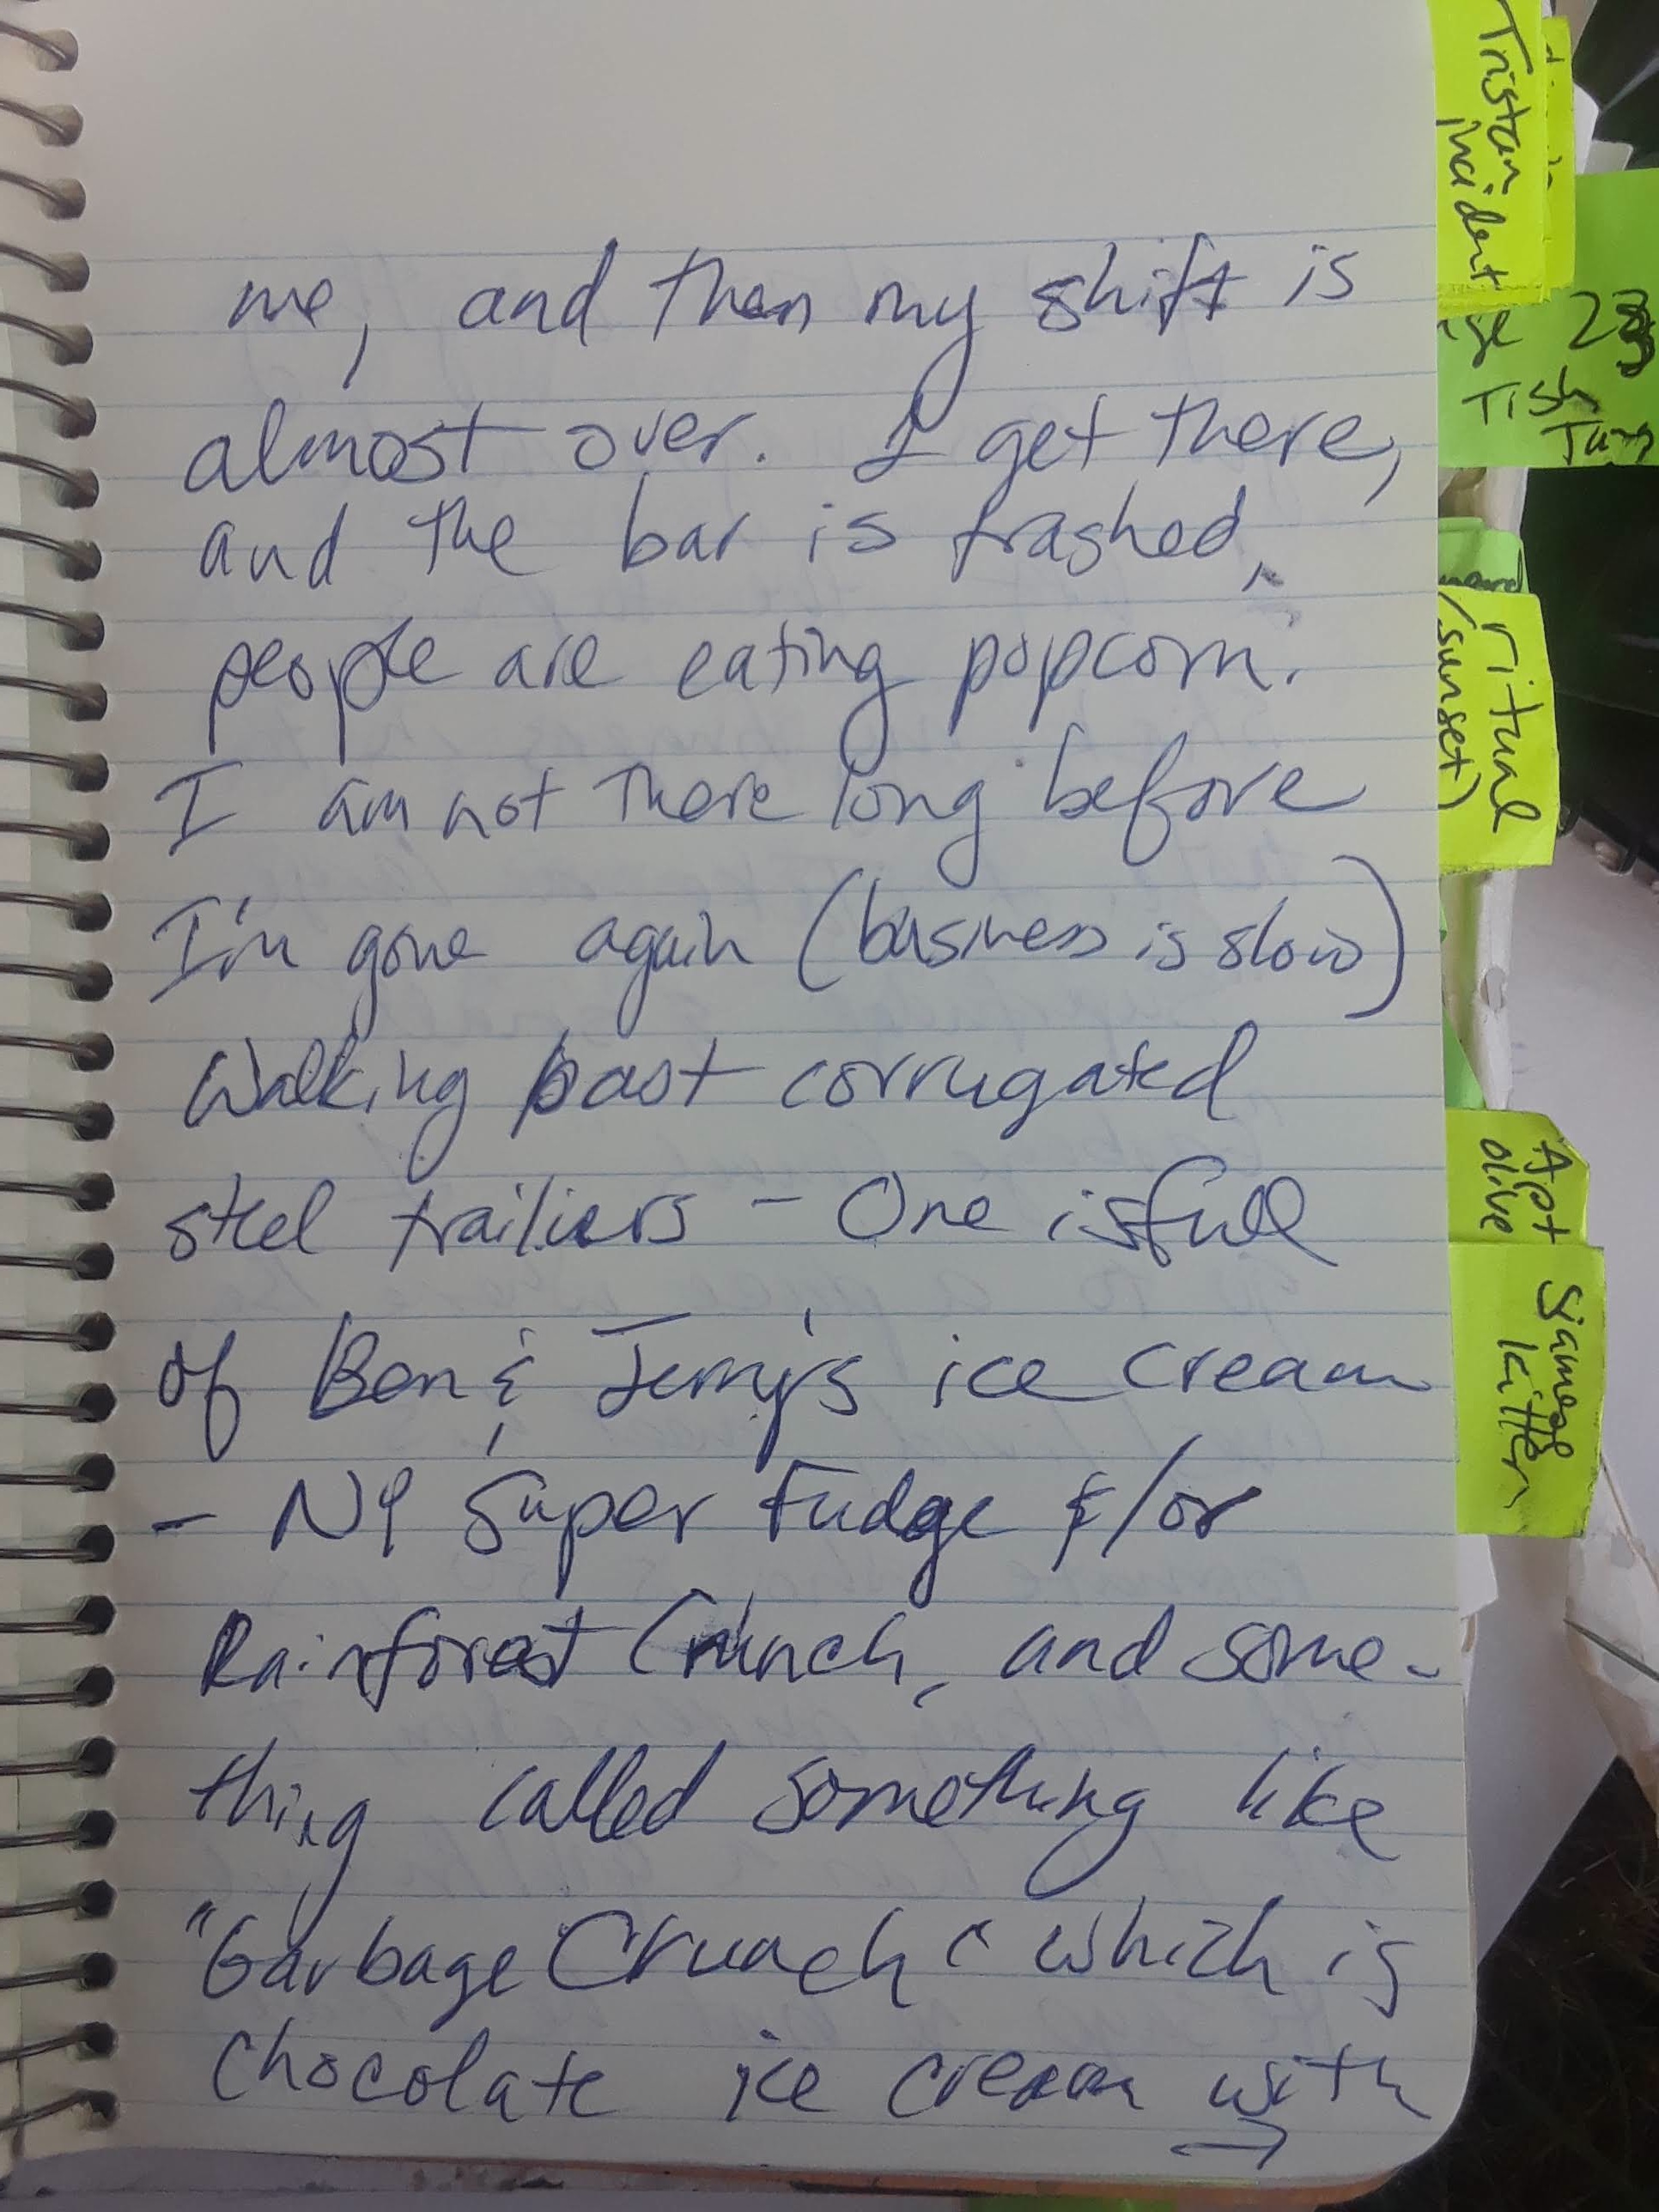 me, and then my shift is
almost over. I get there,
and the bar is trashed,
people are eating popcorn.
I am not there long before
I'm gone again (business is slow)
Walking past corrugated
steel trailiers - One is full
of Ben & Jerry's ice cream
- NY Super Fudge &/or
Rainforest Crunch, and some-
thing called something like
"Garbage Crunch" which is
chocolate ice cream with
→
Tristan
incident
Tish
ritual
(sunset)
Apt
olive
Siamese
kitten